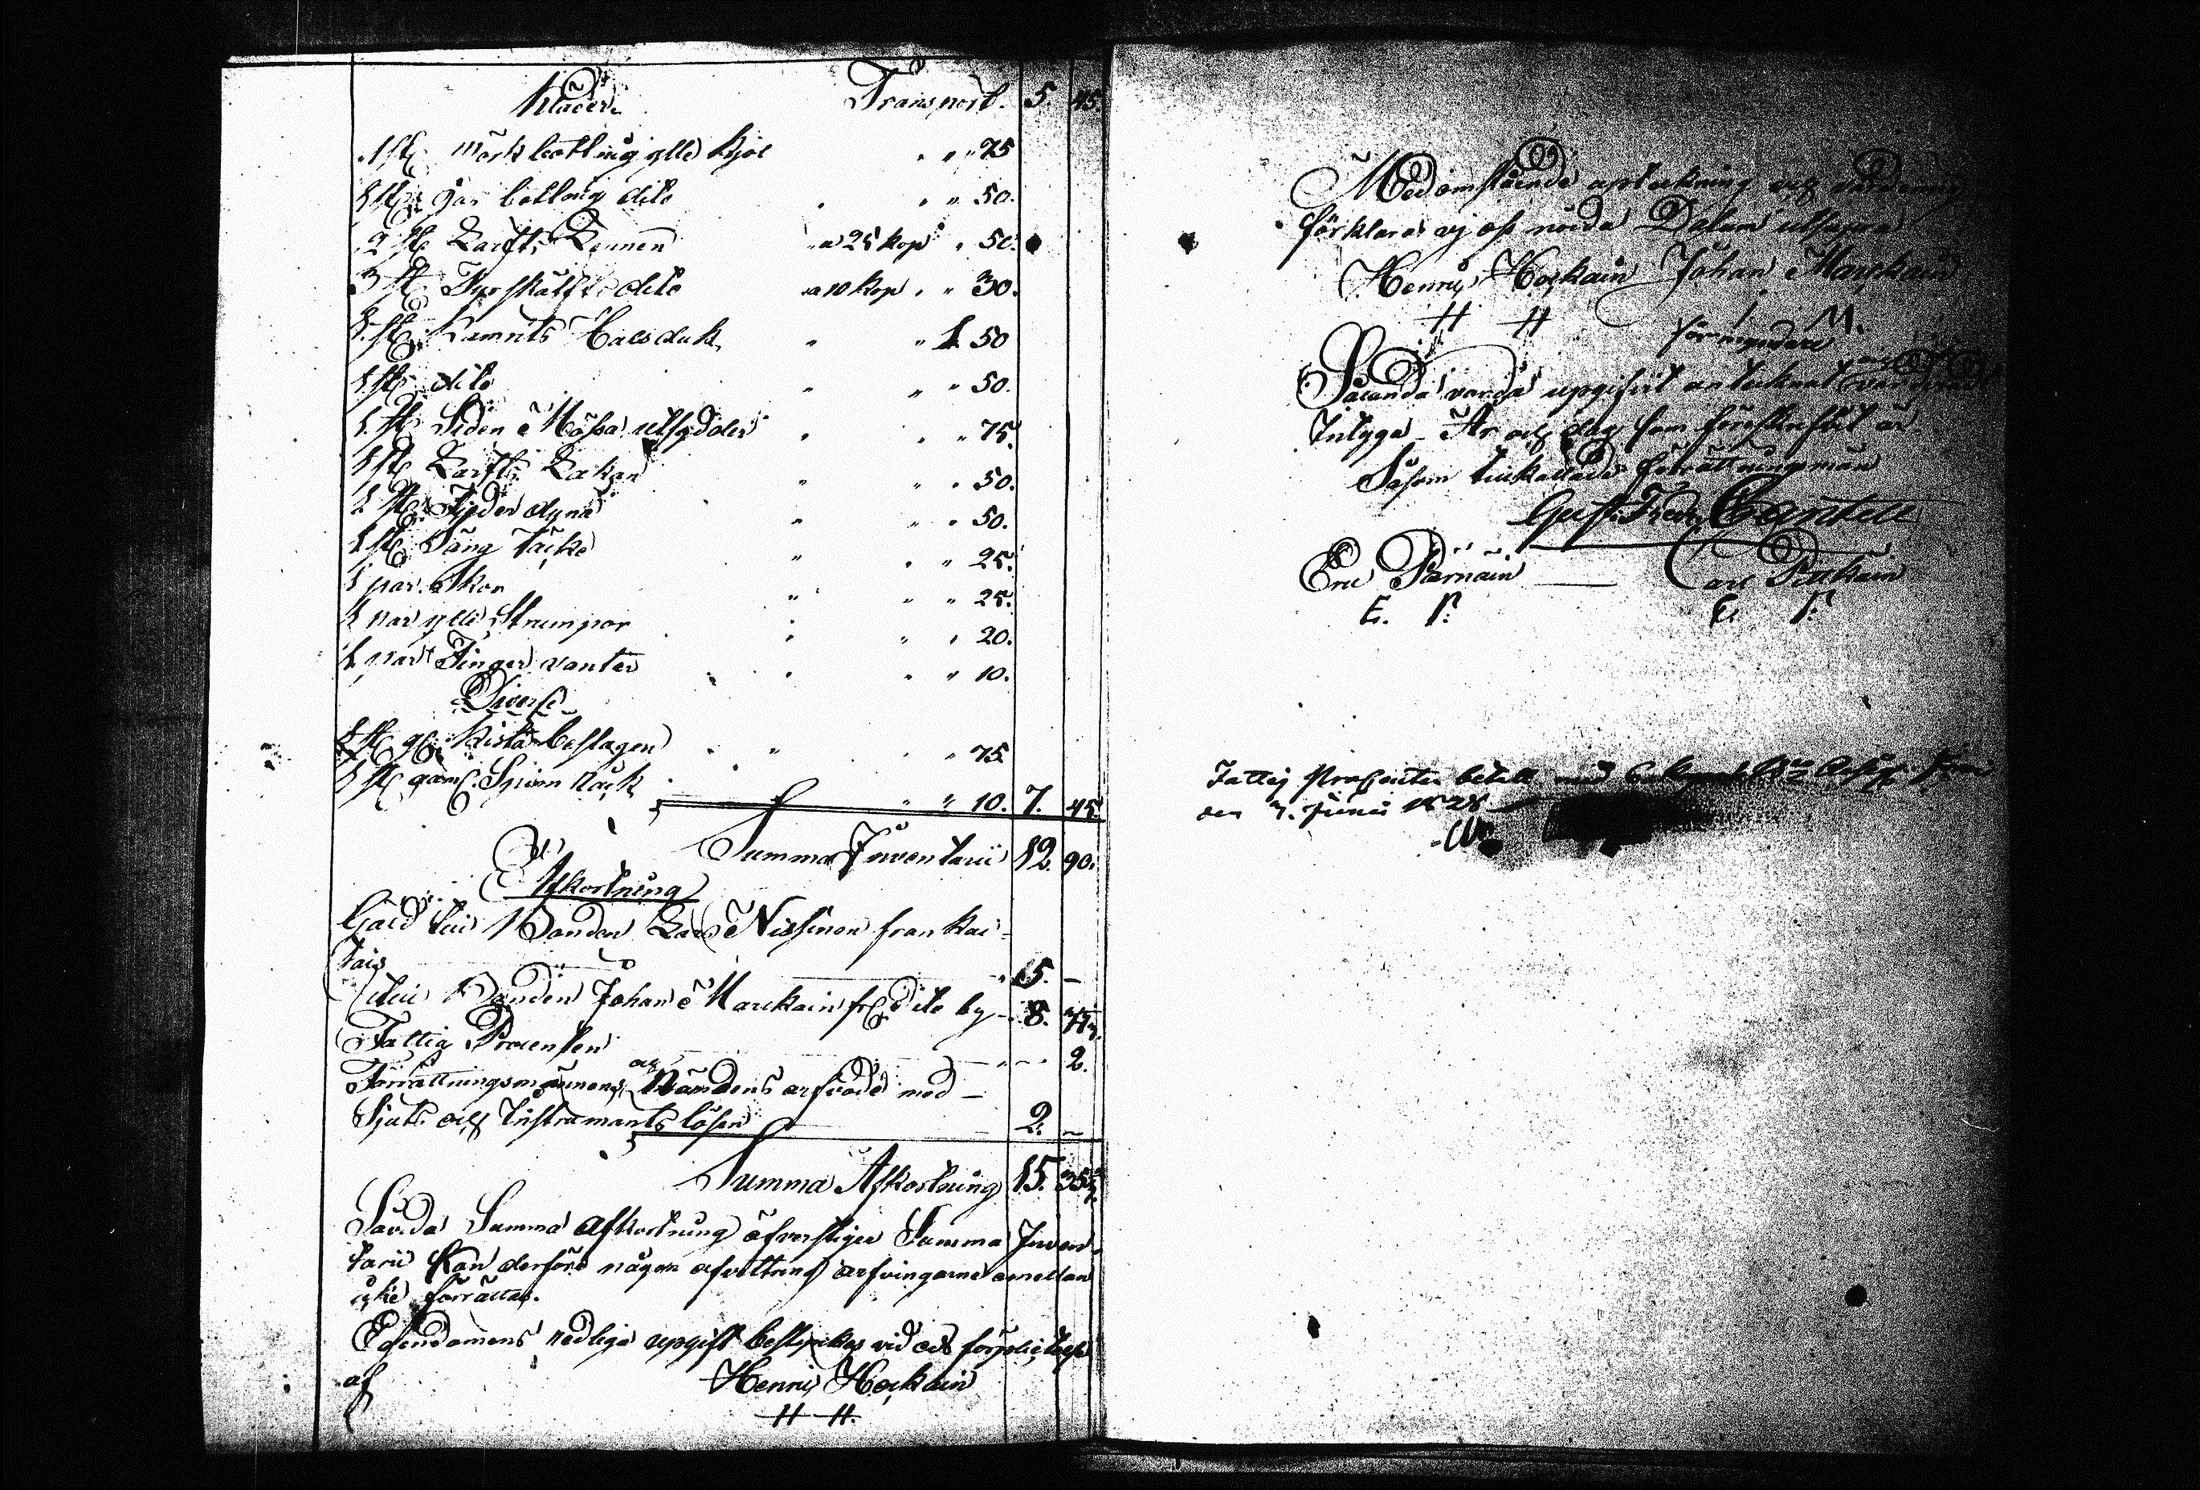 Kläder Transport. 5. 45.
1 st. mörk bottnig ylle Kjol " " 75
1 st. gas bottnig dito " " 50.
2 st. Larfts Linnen a 25 kop " 50.
3 st. Fyrskäfts dito a 10 kop " " 30.
1 st. Lerinits Halsduk " " 1 50
1 st. dito " " 50.
1 st. Siden Mössa utsydder " " 75.
1 st. Larfts Lakan " " 50.
1 st. Fjeder dyna " " 50.
1 st. Säng Täcke " " 25.
1 par Skor " " 25.
1 par ylle Strumpor " " 20.
1 par Finger vantar " " 10.
Diverse
1 st. gl. Kista beslagen " " 75
1 st. gam. Spinn Råck " " 10. 7. 45.
Summa Inventarii 12. 90.
Afkortning
Gäld till Bonden Lars Nissinen från Kai-
tais 5. -
till Bonden Johan Marckain fr. dito by 8.
Fattig Procenten 2.
Förrättningsmännens och Nämdens arfvode med
Sjuts och Instramants lösen 2. -
Summa Afkortning 15. 35
Såvida Summa Afkortning öfverstiger Summa Inven-
tarii kan derföre någon afvittring arfvingarne emellan
icke förrättas.
Egendomens redliga uppgift besty‌rkes vid ed förpliktelse
af Henric Hockain
H H.
Med omstående upteckning och värdering
förklara vi oss nöjda Datum utsupra
Henric Hockain Johan Marckain
H H I. M.
förmyndare
Sålunda vara uppgifvit antecknat och värderadt
Intyga År och dag som föreskrifvit är
Såsom tillkallade förrättningsmän
Gust. Fredr.
Eric Pärnäin Carl Pitkain
E. P. C. P.
Fattig Procenten betalt med
den 7. Junii 1828